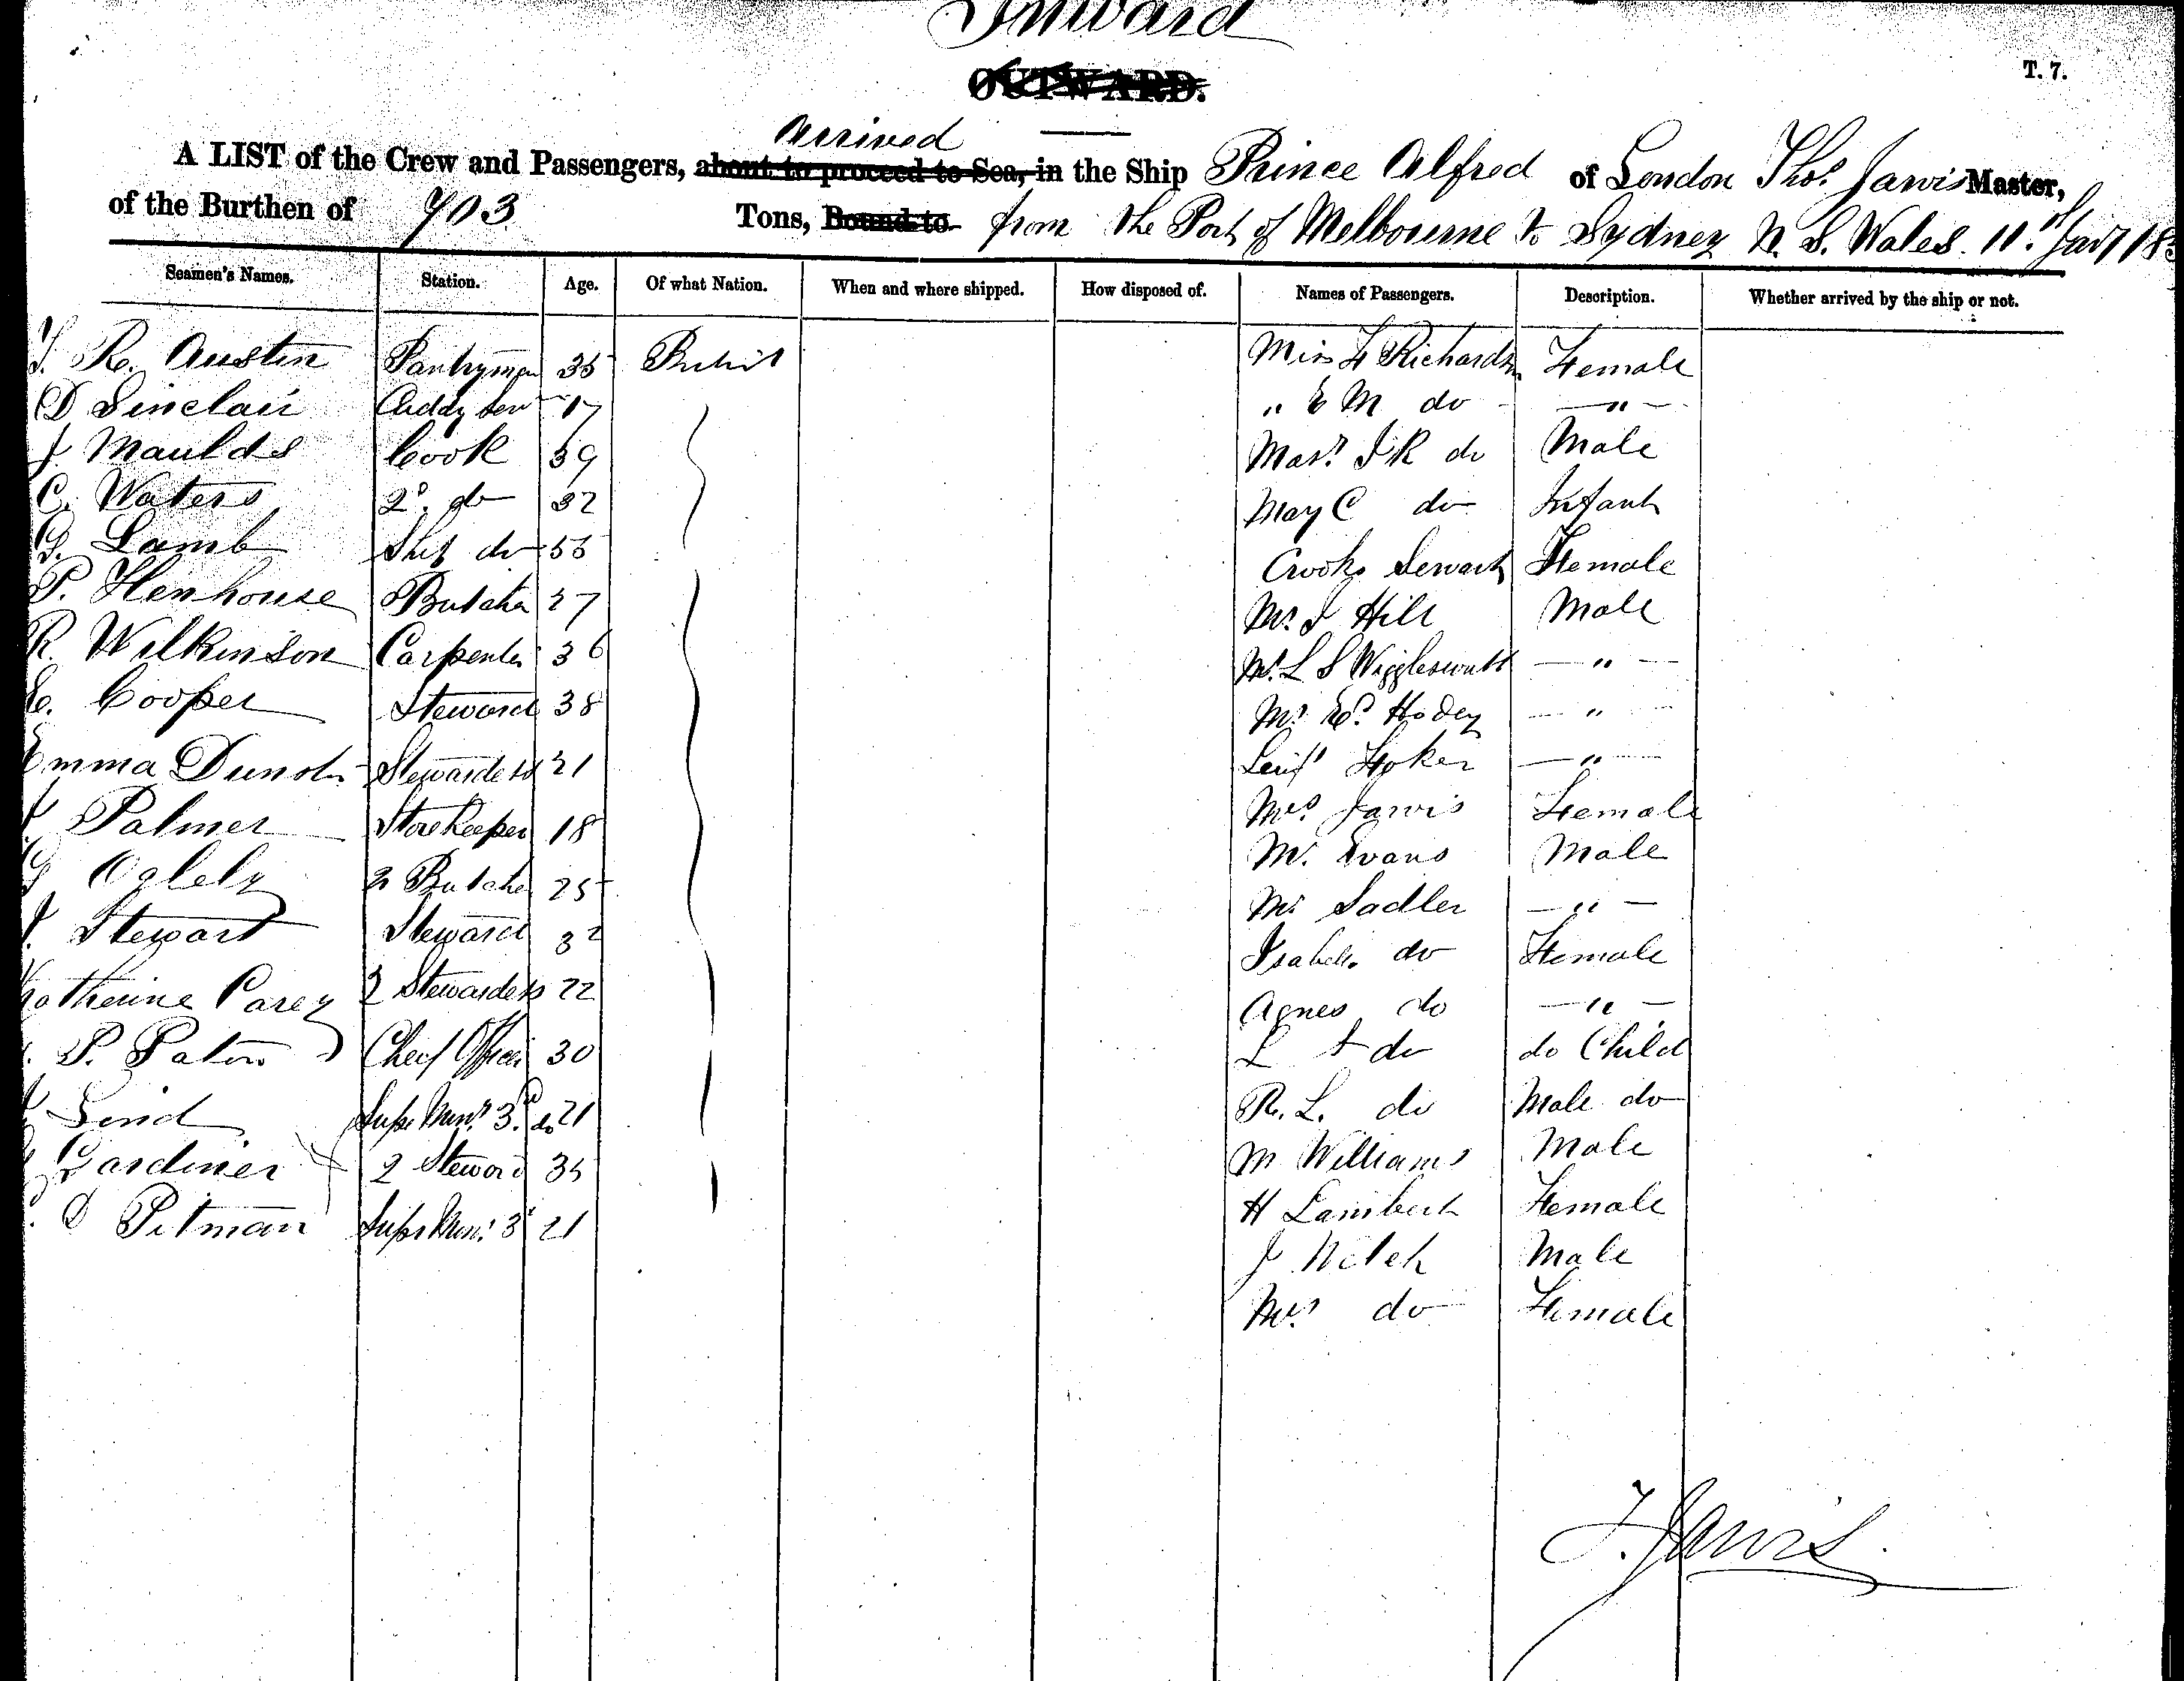 Inward
OUTWARD.
T. 7.
arrived
A LIST of the Crew and Passengers, about to proceed to Sea, in the Ship Prince Alfred of London Thos. Jarvis Master,
of the Burthen of 703 Tons, Bound to from the Port of Melbourne to Sydney N. S. Wales. 11th Jany 18
Seamen's Names. Station. Age. Of what Nation. When and where shipped. How disposed of. Names of Passengers. Description. Whether arrived by the ship or not.
R. Austin Pantryman 35 British Miss Richardson Female
D Sinclair Cuddy Serv 17 " E M do — " —
J Maulds Cook 39 Mas. J R do Male
C. Waters 2d. do 32 May C do Infant
G. Lamb Ship do 55 Crooks Servant Female
P. Henhouse Butcher 27 Mr J Hill Male
R. Wilkinson Carpenter 36 Mr. L S — " —
E. Cooper Steward 38 Mr — " —
Emma Stewardess 21 — " —
Palmer Storekeeper 18 Mrs Jarvis Female
2 Butcher 25 Mr. Evans Male
Stewart Steward 32 Mr Sadler — " —
Catherine Carey 2 Stewardess 22 Isabella do Female
P. Paton Chief Officer 30 Agnes do — " —
21 L do do Child
Gardiner 2 Steward 35 R. L. do Male do
D Pitman 21 M Williams Male
H Lambert Female
J Male
Mrs do Female
T. Jarvis